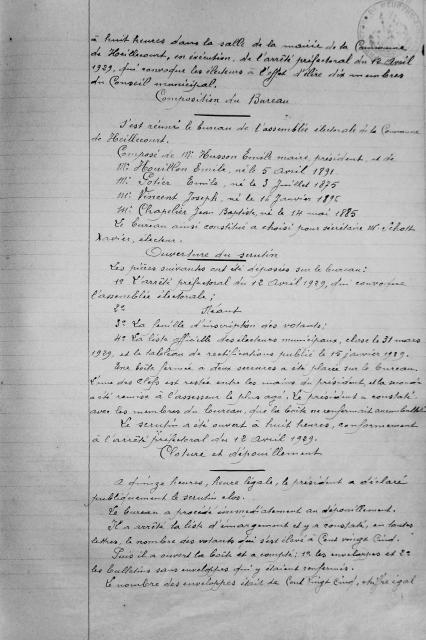 à huit heures dans la salle de la mairie de la Commune
de Heillecourt, en exécution, de l'arrêté préfectoral du 12 Avril
1929, qui convoque les électeurs à l'effet d'élire dix membres
du Conseil municipal.
Composition du Bureau
S'est réuni le bureau de l'assemblée électorale de la Commune
de Heillecourt.
Composé de Mr Husson Emile maire, président, et de
Mr Houillon Emile, né le 5 avril 1891
Mr Potier Emile, né le 3 Juillet 1875
Mr Vincent Joseph, né le 14 Janvier 1896
Mr Chapelier Jean Baptiste, né le 14 mai 1885
Le bureau ainsi constitué a choisi pour secrétaire Mr
Xavier, électeur.
Ouverture du scrutin
Les pièces suivantes ont été déposées sur le bureau:
1º L'arrêté préfectoral du 12 Avril 1929, qui convoque
l'assemblée électorale;
2º Néant
3º La feuille d'inscription des votants;
4º La liste officielle des électeurs municipaux, close le 31 mars
1929, et le tableau de rectifications publié le 15 janvier 1929.
Une boîte fermée à deux serrures a été placée sur le bureau.
L'une des clefs est restée entre les mains du président, et la
a été remise à l'assesseur le plus agé. Le président a constaté
avec les membres du bureau, que la boîte ne renfermait aucun bulletin
Le scrutin a été ouvert à huit heures, conformément
à l'arrêté préfectoral du 12 avril 1929.
Cloture et dépouillement
A quinze heures, heure légale, le président a déclaré
publiquement le scrutin clos.
Le bureau a procédé immédiatement au dépouillement.
Il a arrêté la liste d'émargement et y a constaté, en toutes
lettres, le nombre des votants qui s'est élevé à Cent vingt Cinq.
Puis il a ouvert la boîte et a compté; 1º les enveloppes et 2º
les bulletins sans enveloppes qui y étaient renfermés.
Le nombre des enveloppes était de Cent Vingt Cinq, chiffre égal